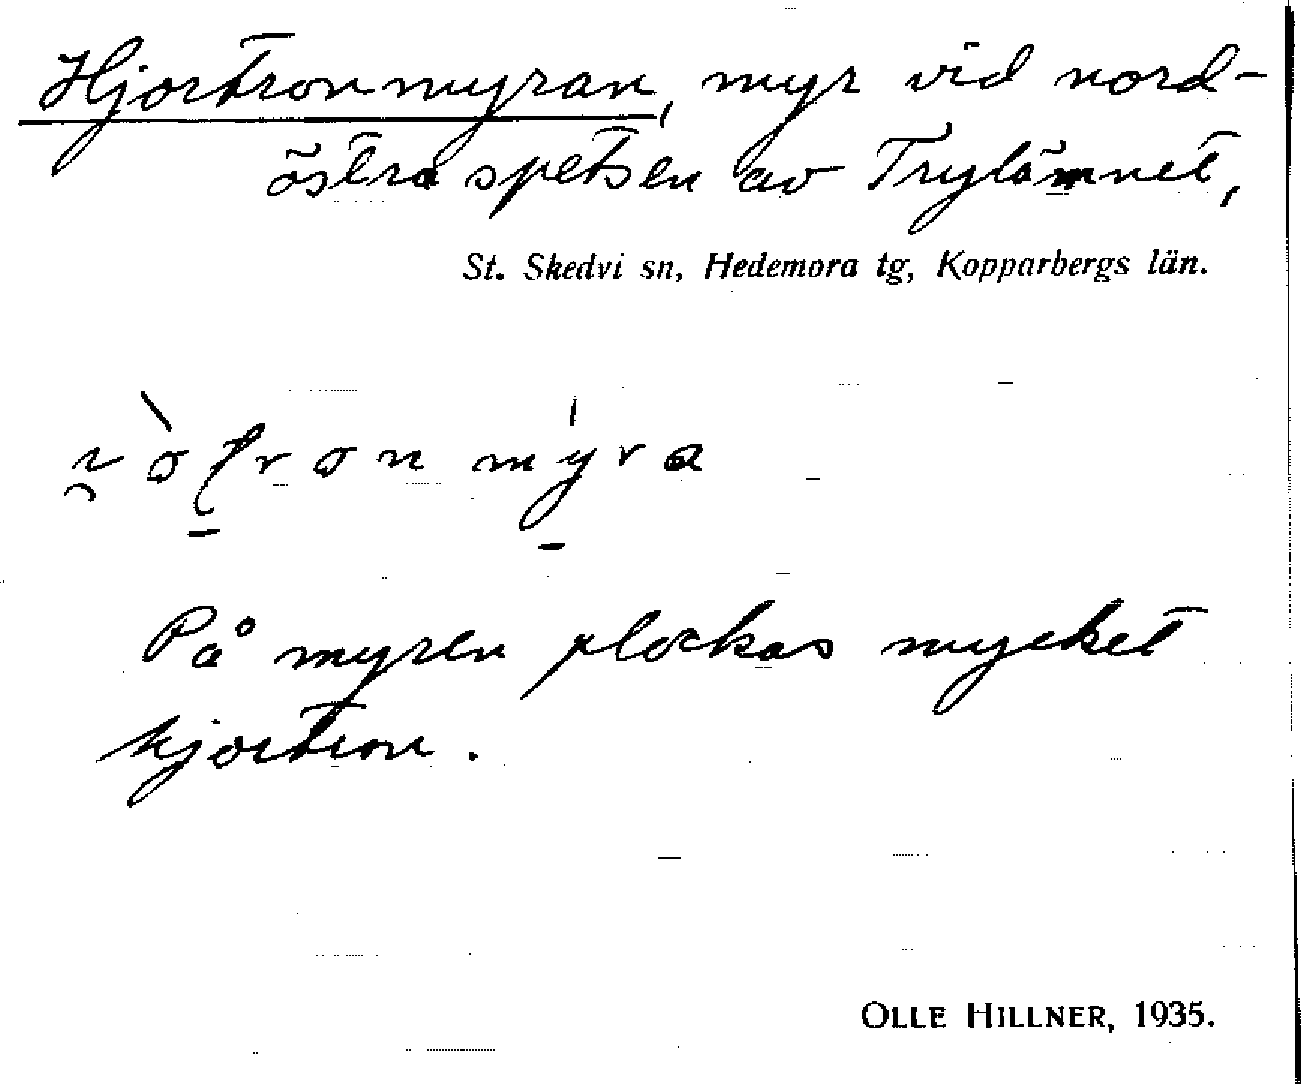 Hjortronmyran, myr vid nord-
östra spetsen av Trylämnet,
St. Skedvi sn, Hedemora tg, Kopparbergs län.
På myren plockas mycket
hjortron.
OLLE HILLNER, 1935.